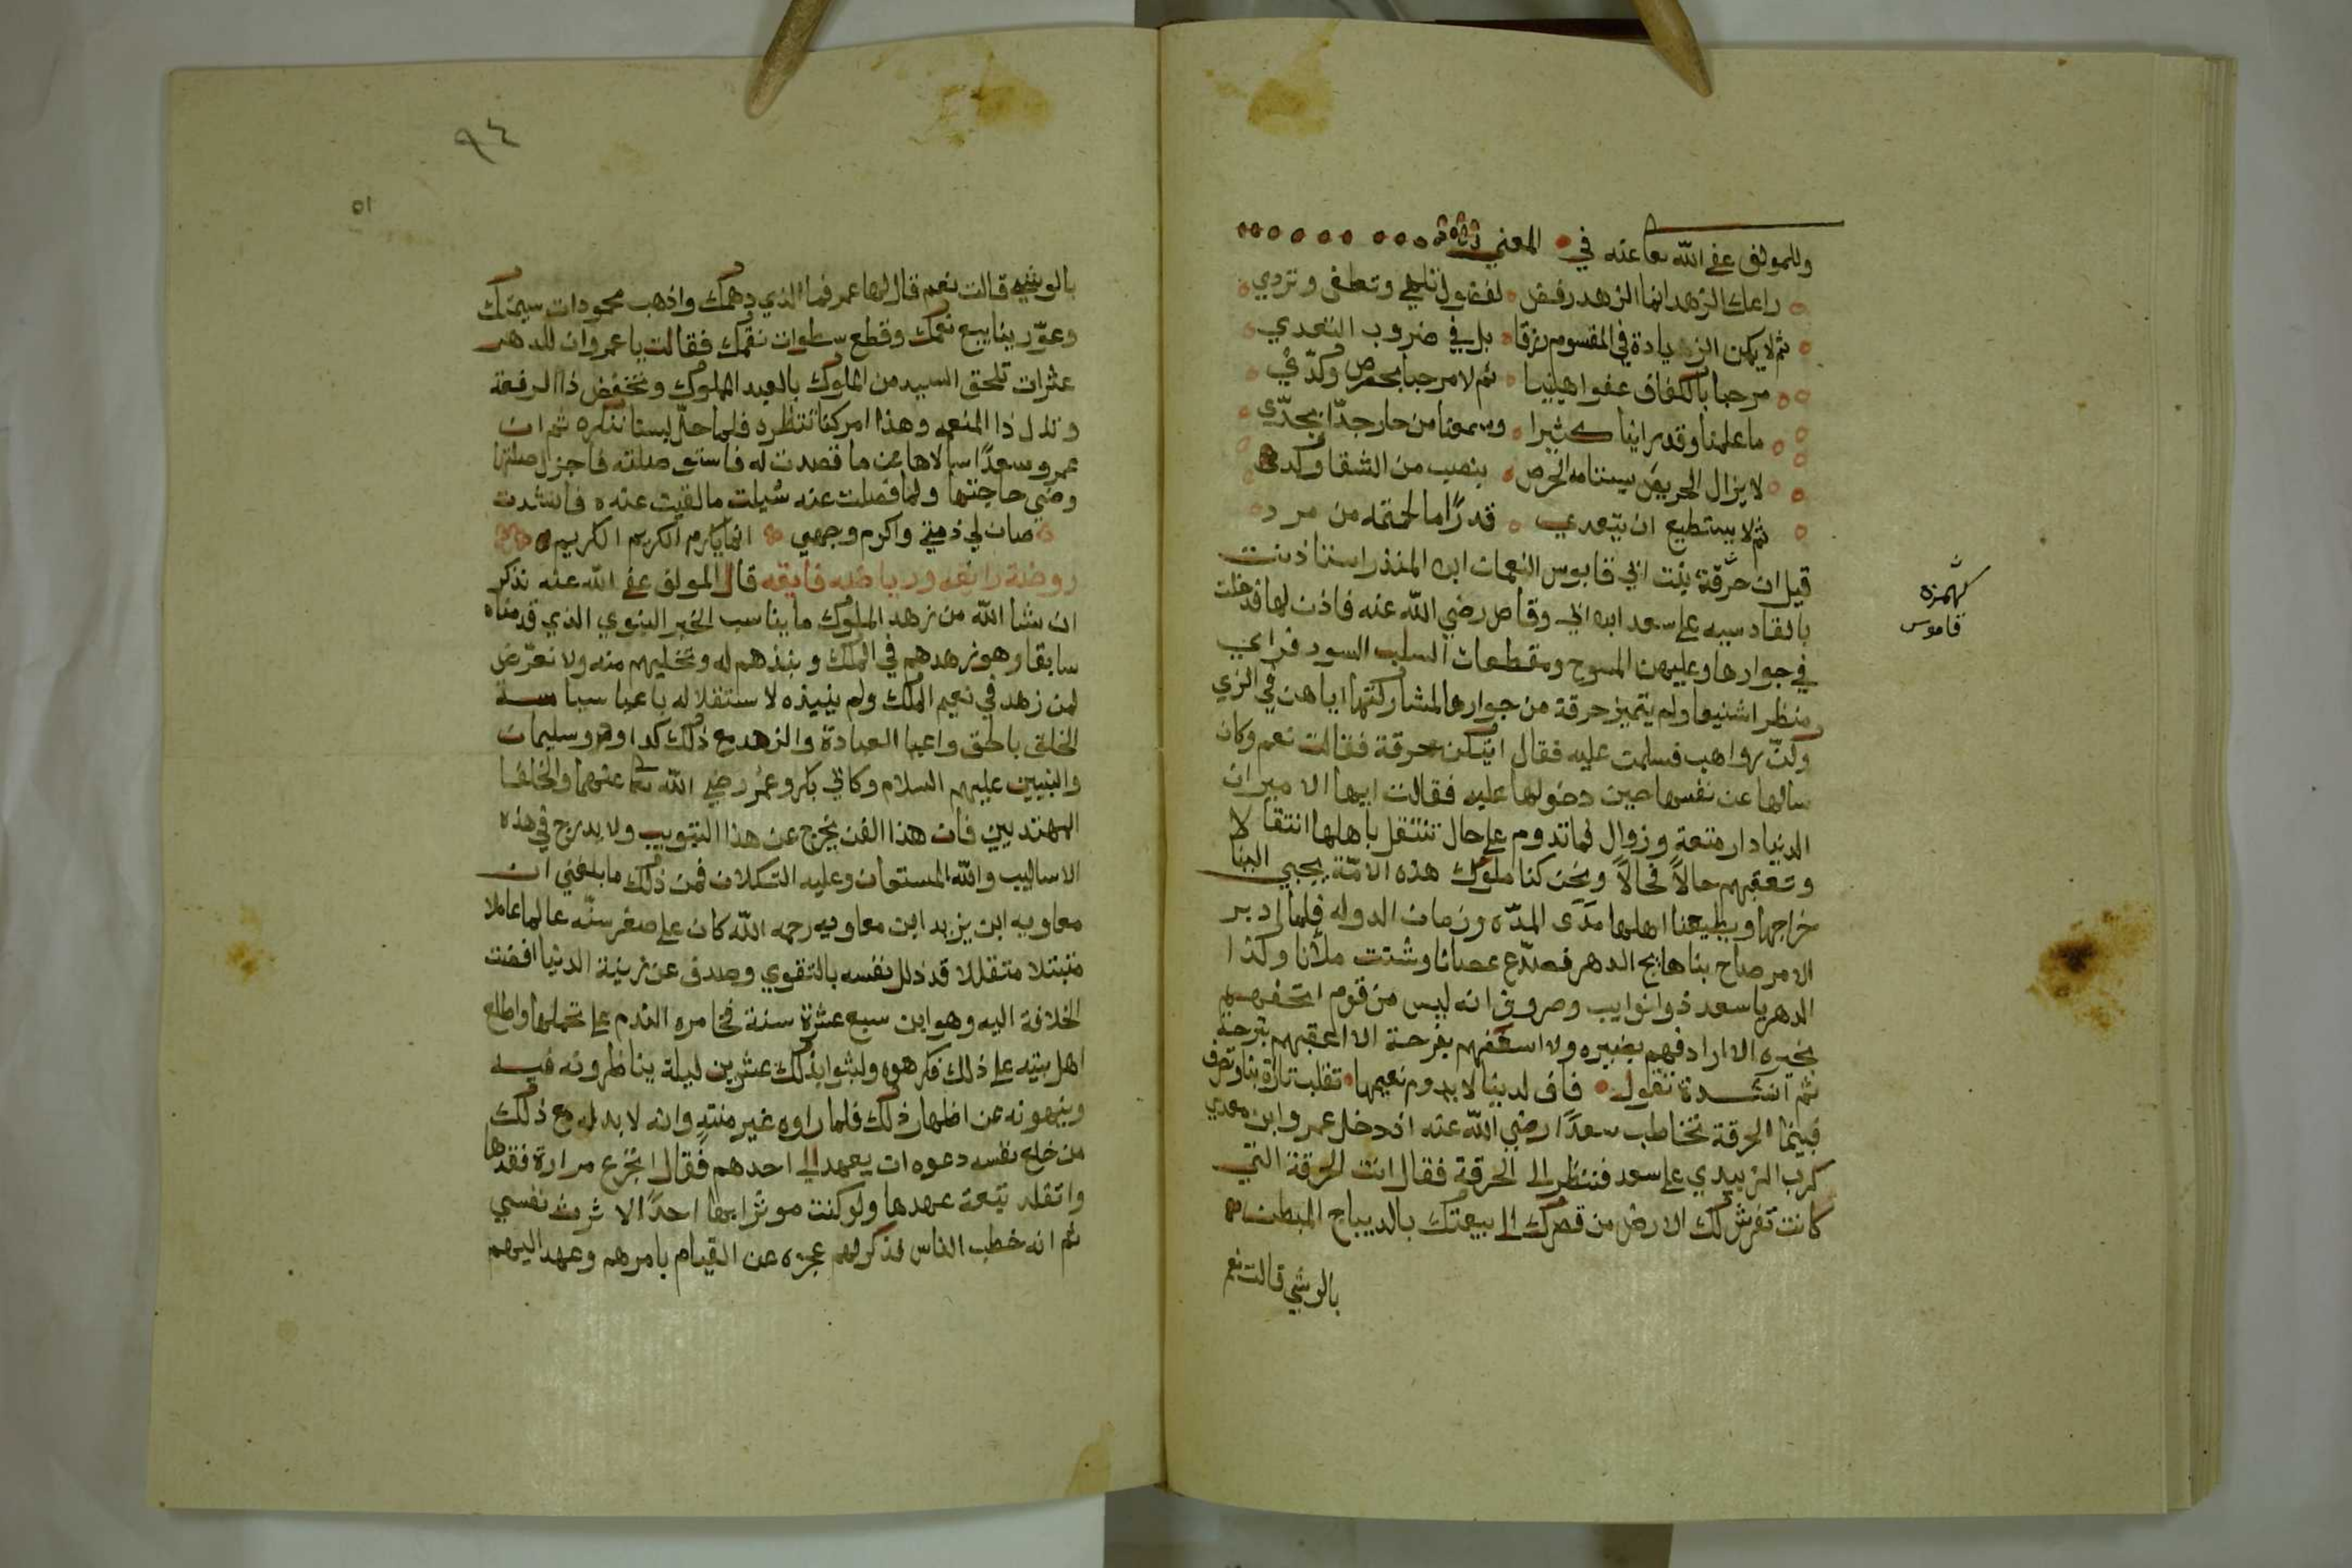 وللمولف عفي الله تعا عنه في المعني
راعك الزهد انما الزهد رفض لفضول تلهي وتطغي وتردي
ثم لا يكن الزيادة في المقسوم رزقا بل في ضروب التعدي
مرحبا بالكفاف عفوا هنيئا ثم لا مرحبا بحرص وكدّ
ما علمنا وقد راينا كثيرا وسمعنا من حاز جدّا بجدّ
لا يزال الحريص بنصب من الشقا وكد
ثم لا يستطيع ان يتعدي قدرًا ما لحتمه من مرد
قيل ان حرقة بنت ابي قابوس النعمان ابن المنذر استاذنت
بالقادسيه علي سعد ابن ابي وقاص رضي الله عنه فاذن لها فدخلت
في جوارها وعليهن المسوح ومقطعات السلب السود فراي
منظرا شنيعا ولم يتميز حرقة من جوارها لمشاركتها اياهن في الزي
وكنّ رواهب فسلمت عليه فقال ايتكن حرقة فقالت نعم وكان
سالها عن نفسها حين دخولها عليه فقالت ايها الامير ان
الدنيا دار متعة وزوال فما تدوم علي حال تنتقل باهلها انتقالا
وتعقبهم حالاً فحالاً ونحن كنا ملوك هذه الامّة يجبي الينا
خراجها ويطيعنا اهلها مدَى المدّه وزمان الدوله فلما ادبر
الامر صاح بنا صايح الدهر فصدّع عصانا وشتت ملأنا وكذا
الدهر يا سعد ذو انوايب وصروف انه ليس من قوم اتحفهم
بخيره الا اردفهم بضيره ولا اسعفهم بفرحة الا اعقبهم بترحة
ثم انشدة تقول فاف لدنيا لا يدوم نعيمها تقلب تارة بنا وتصرف
فبينما الحرقة تخاطب سعدًا رضي الله عنه اذ دخل عمرو ابن معدي
كرب الزبيدي علي سعد فنظر الى الحرقة فقال انت الحرقة التي
كانت تفرش لك الارض من قصرك الى بيعتك بالديباج المبطن
بالوشي قالت نعم
كهُمزه
قاموس
٩٤
٥١
بالوشي قالت نعم قال لها عمر فما الذي دهمك واذهب محمودات سيمتك
وعوّر ينابيع نعمك وقطع سطوات نقمك فقالت يا عمرو ان للدهر
عثرات تلحق السيد من الملوك بالعبد المملوك وتخفض ذا الرفعة
وتذل ذا المنعه وهذا امر كنا ننتظره فلما حلّ لسنا ننكره ثم ان
عمرو وسعدًا سالاها عن ما قصدت له فاجزل صلتها
وقضي حاجتها ولما فصلت عنه سُيلت ما لقيت عنه فانشدت
صان لي ذمتي واكرم وجهي انما يكرم الكريم الكريم
روضة رايعه ورياضه فايقه قال المولف عفي الله عنه نذكر
ان شا الله من زهد الملوك ما يناسب الخبر النبوي الذي قدمناه
سابقا وهو زهدهم في الملك ونبذهم له وتخليهم منه ولا نعرّض
لمن زهد في نعيم الملك ولم ينبذه لاستقلاله باعبا سياسة
الخلق بالحق واعبا العبادة والزهد مع ذلك كداوود وسليمان
والنبيين عليهم السلام وكابي بكر وعمر رضي الله تعا عنهما والخلفا
المهتديين فان هذا الفن يخرج عن هذا التبويب ولا يدرج في هذه
الاساليب والله المستعان وعليه التكلان فمن ذلك ما بلغني ان
معاويه ابن يزيد ابن معاويه رحمه الله كان علي صغر سنّه عالما عاملا
متبتلا متقللا قد ذلل نفسه بالتقوي وصدف عن زينة الدنيا افضت
الخلافة اليه وهو ابن سبع عشرة سنة فخامره الندم علي تحملها واطلع
اهل بيته علي ذلك فكرهوه ولبثوا بذلك عشرين ليلة يناظرونه فيه
وينهونه عن اظهار ذلك فلما راوه غير منتهٍ وانه لا بد له مع ذلك
من خلع نفسه دعوه ان يعهد الى احدهم فقال اتجزع مرارة فقدها
واتقلد تبعة عهدها ولو كنت موثرا بها احدًا الا ثرت نفسي
ثم انه خطب الناس فذكر لهم عجزه عن القيام بامرهم وعهد اليهم